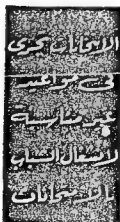 الامتحانات تجرى
في مواعيد
غير مناسبة
لانشغال الشباب
بالامتحانات